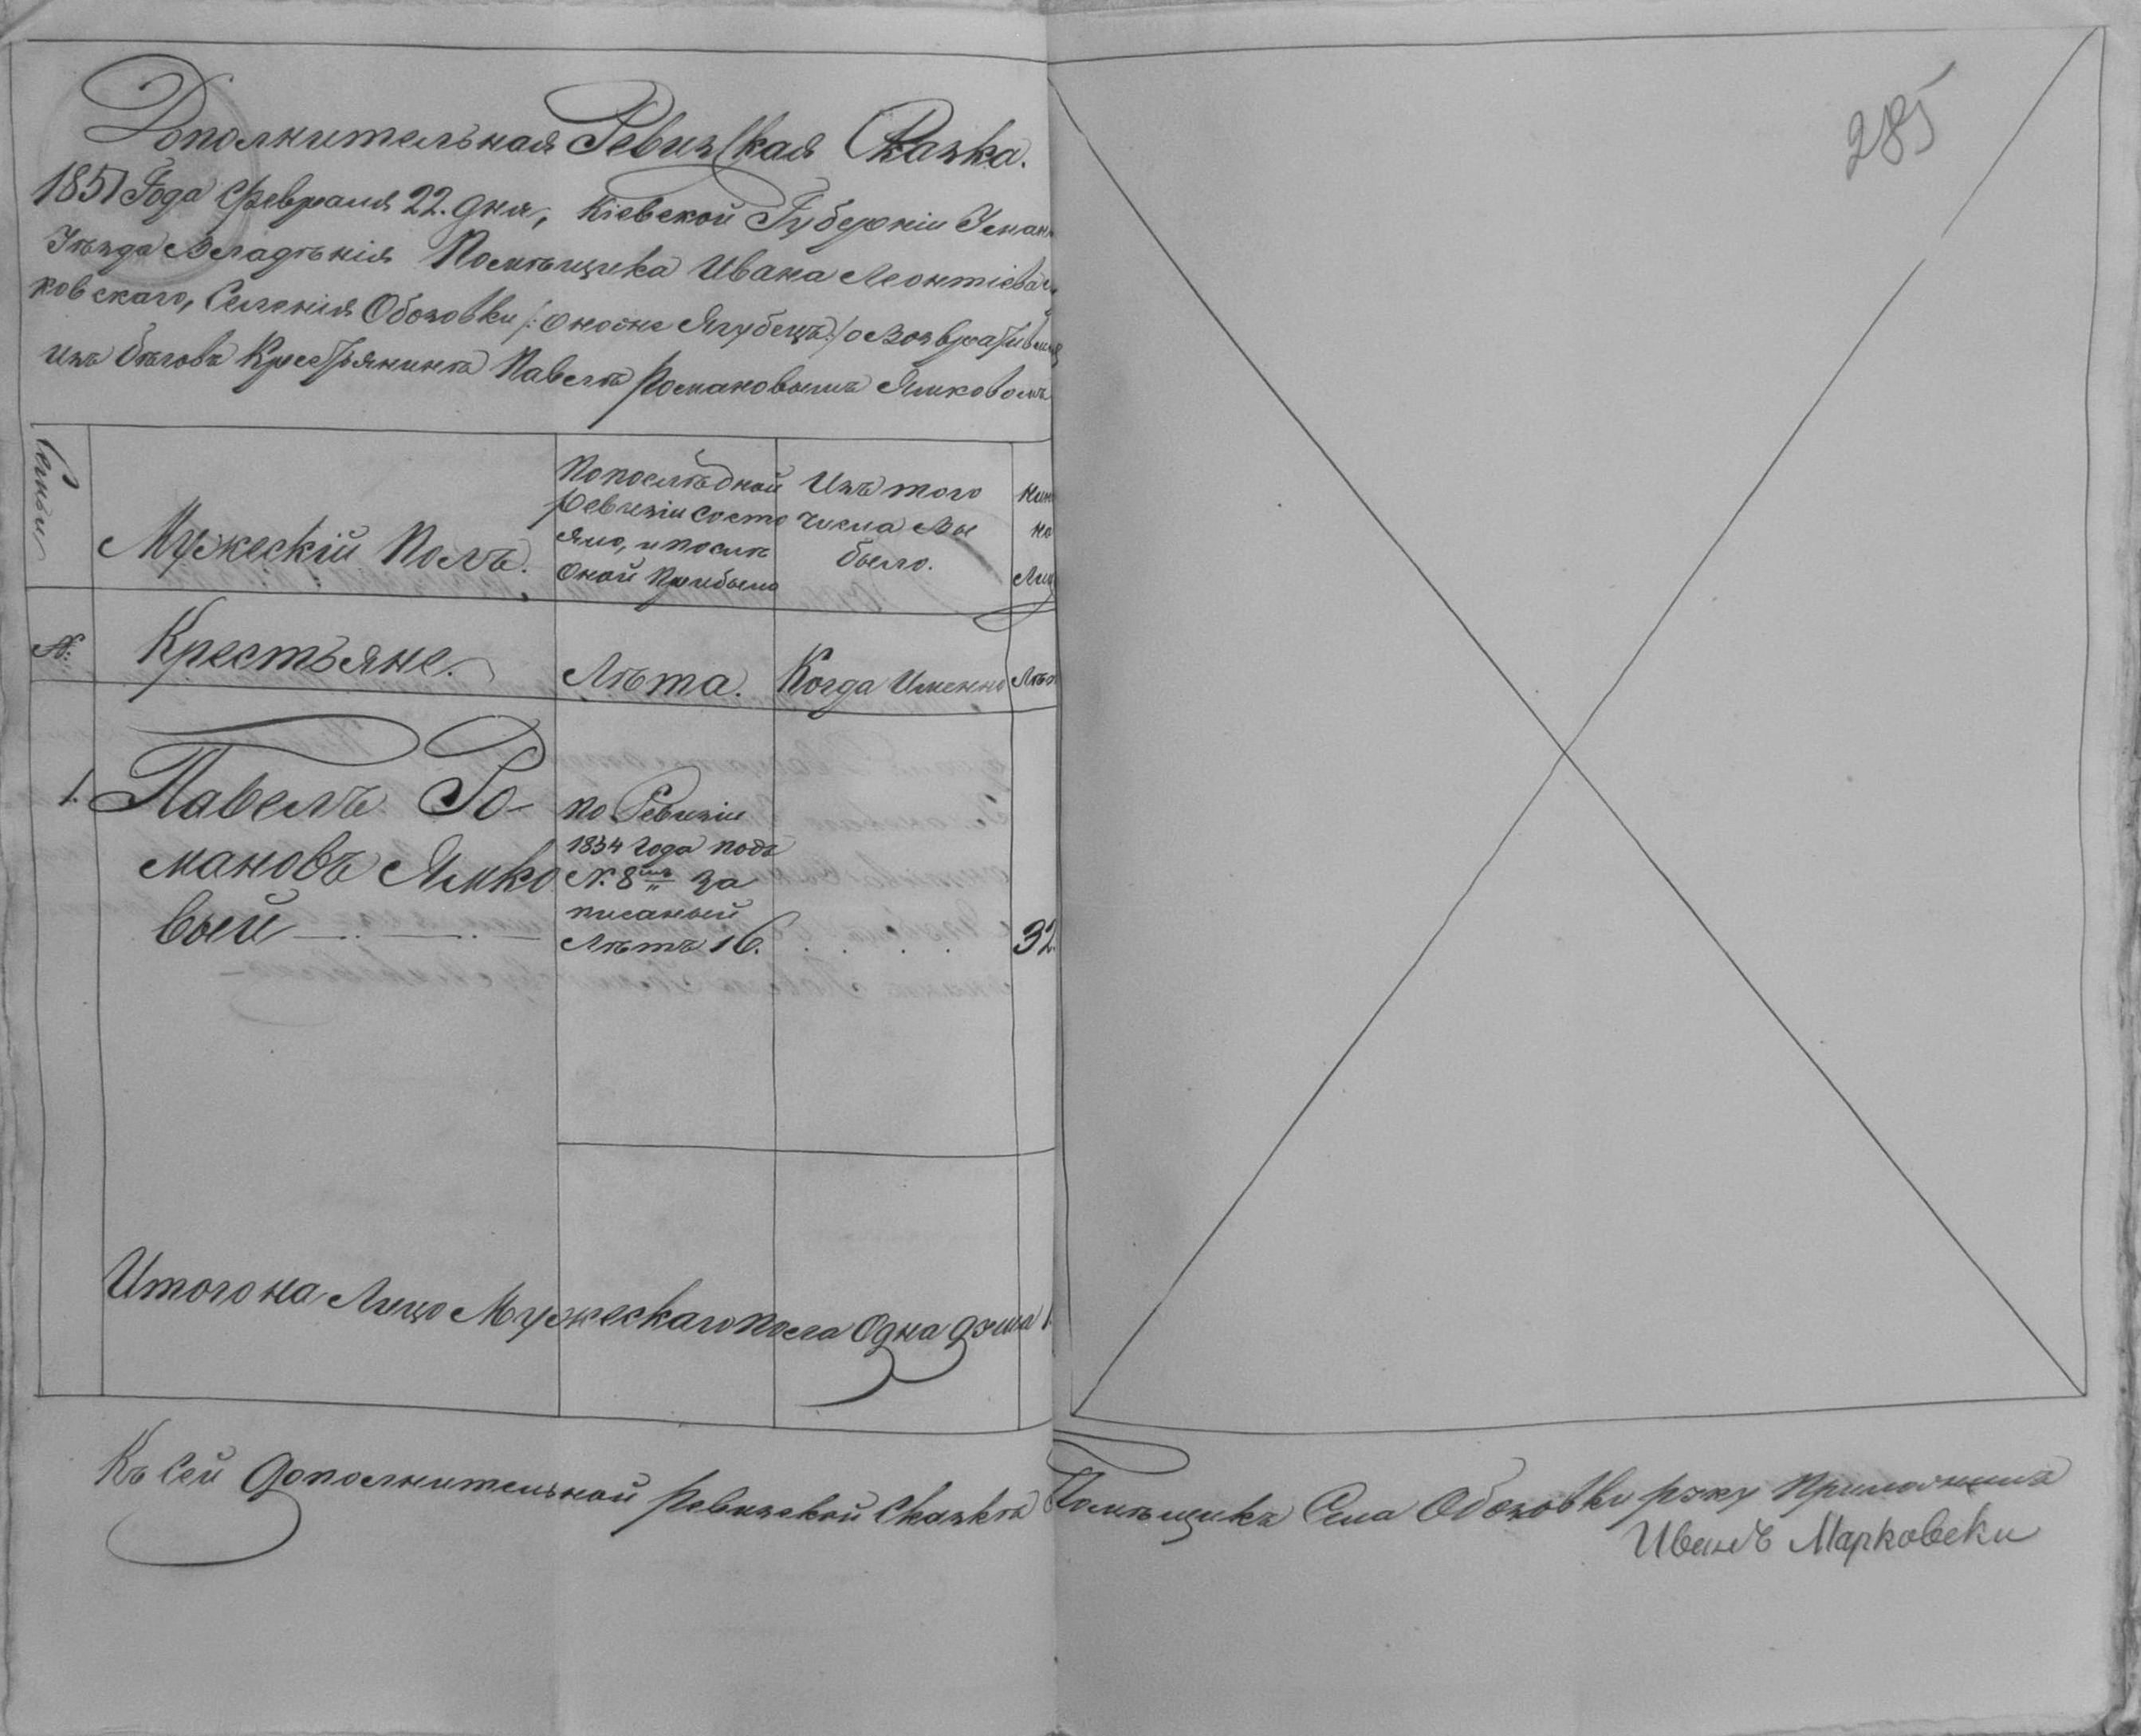 Дополнительная Ревизская Сказка.
1851 Года Февраля 22. дня, Кіевской Губерніи Уман
Уѣзда Владѣнія Помѣщика Ивана Леонтіева
ковскаго, Селенія Обозовки /: оноже Ягубецъ :/ о Возвратив
изъ бѣговъ Крестьянинѣ Павелѣ Романовымъ Ямковомъ
Семьи
Мужескій Полъ.
По послѣдной
Ревизіи состо
яло, и послѣ
Оной Прибыло
Изъ того
числа Вы
было.
Нын
на
Лиц
№:
Крестьяне.
Лѣта.
Когда Именно
Лѣт
1.
Павелъ Ро-
мановъ Ямко
вый
по Ревизіи
1834 года подъ
№. 8мъ за
писаный
Лѣтъ 16.
32.
Итого на Лицо Мужескаго пола Одна душа 1.
Къ Сей Дополнительной Ревизской Сказкѣ Помѣщикъ Села Обозовки руку Приложилъ
Иванъ Марковски
285